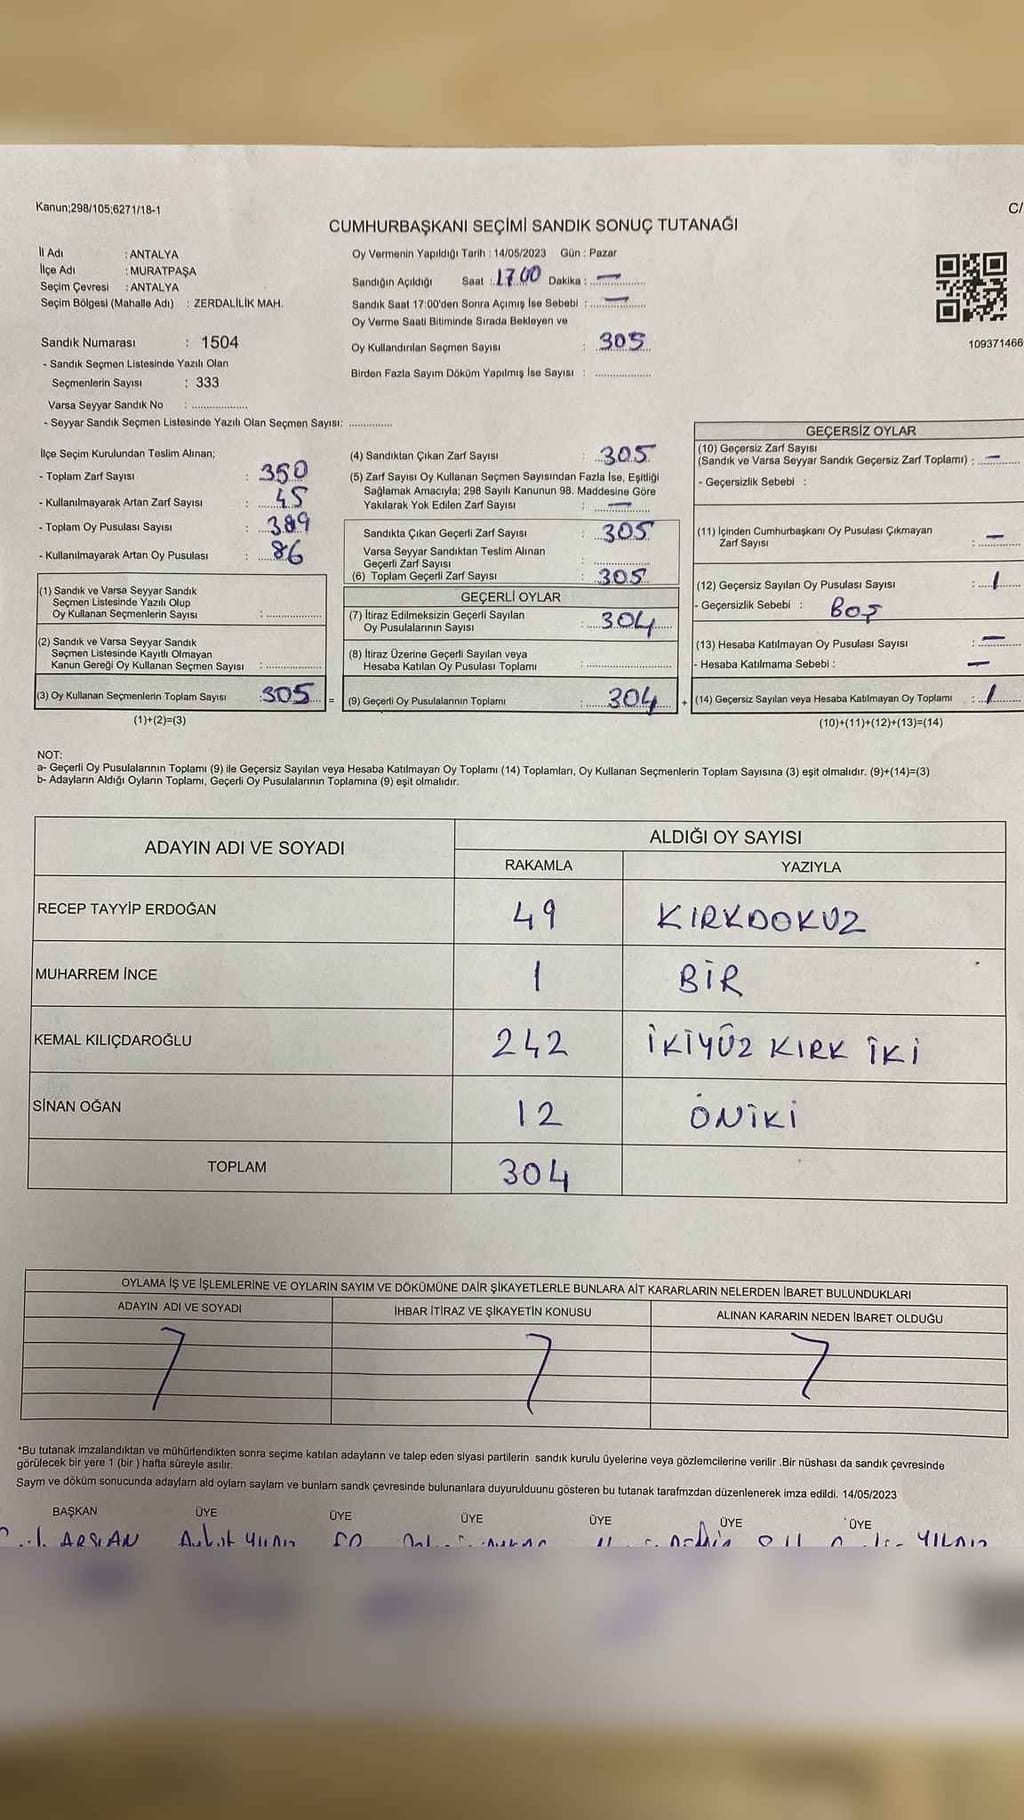 Kanun;298/105;6271/18-1
C/
CUMHURBAŞKANI SEÇİMİ SANDIK SONUÇ TUTANAĞI
İl Adı : ANTALYA
İlçe Adı : MURATPAŞA
Seçim Çevresi : ANTALYA
Seçim Bölgesi (Mahalle Adı) : ZERDALİLİK MAH.
Sandık Numarası : 1504
- Sandık Seçmen Listesinde Yazılı Olan
Seçmenlerin Sayısı : 333
Varsa Seyyar Sandık No : ...................
- Seyyar Sandık Seçmen Listesinde Yazılı Olan Seçmen Sayısı: ...............
Oy Vermenin Yapıldığı Tarih : 14/05/2023 Gün : Pazar
Sandığın Açıldığı Saat : 17.00 Dakika : —
Sandık Saat 17:00'den Sonra Açımış İse Sebebi : —
Oy Verme Saati Bitiminde Sırada Bekleyen ve
Oy Kullandırılan Seçmen Sayısı : 305
Birden Fazla Sayım Döküm Yapılmış İse Sayısı : ...................
109371466
İlçe Seçim Kurulundan Teslim Alınan;
- Toplam Zarf Sayısı : 350
- Kullanılmayarak Artan Zarf Sayısı : 45
- Toplam Oy Pusulası Sayısı : 389
- Kullanılmayarak Artan Oy Pusulası : 86
(1) Sandık ve Varsa Seyyar Sandık
Seçmen Listesinde Yazılı Olup
Oy Kullanan Seçmenlerin Sayısı : ...................
(2) Sandık ve Varsa Seyyar Sandık
Seçmen Listesinde Kayıtlı Olmayan
Kanun Gereği Oy Kullanan Seçmen Sayısı : ...................
(3) Oy Kullanan Seçmenlerin Toplam Sayısı 305 =
(1)+(2)=(3)
(4) Sandıktan Çıkan Zarf Sayısı : 305
(5) Zarf Sayısı Oy Kullanan Seçmen Sayısından Fazla İse, Eşitliği
Sağlamak Amacıyla; 298 Sayılı Kanunun 98. Maddesine Göre
Yakılarak Yok Edilen Zarf Sayısı : —
Sandıkta Çıkan Geçerli Zarf Sayısı : 305
Varsa Seyyar Sandıktan Teslim Alınan
Geçerli Zarf Sayısı : ...................
(6) Toplam Geçerli Zarf Sayısı : 305
GEÇERLİ OYLAR
(7) İtiraz Edilmeksizin Geçerli Sayılan
Oy Pusulalarının Sayısı : 304
(8) İtiraz Üzerine Geçerli Sayılan veya
Hesaba Katılan Oy Pusulası Toplamı : ...................
(9) Geçerli Oy Pusulalarının Toplamı : 304 +
GEÇERSİZ OYLAR
(10) Geçersiz Zarf Sayısı
(Sandık ve Varsa Seyyar Sandık Geçersiz Zarf Toplamı) : —
- Geçersizlik Sebebi :
(11) İçinden Cumhurbaşkanı Oy Pusulası Çıkmayan
Zarf Sayısı : —
(12) Geçersiz Sayılan Oy Pusulası Sayısı : 1
- Geçersizlik Sebebi : BOŞ
(13) Hesaba Katılmayan Oy Pusulası Sayısı : —
- Hesaba Katılmama Sebebi : —
(14) Geçersiz Sayılan veya Hesaba Katılmayan Oy Toplamı : 1
(10)+(11)+(12)+(13)=(14)
NOT:
a- Geçerli Oy Pusulalarının Toplamı (9) ile Geçersiz Sayılan veya Hesaba Katılmayan Oy Toplamı (14) Toplamları, Oy Kullanan Seçmenlerin Toplam Sayısına (3) eşit olmalıdır. (9)+(14)=(3)
b- Adayların Aldığı Oyların Toplamı, Geçerli Oy Pusulalarının Toplamına (9) eşit olmalıdır.
ADAYIN ADI VE SOYADI ALDIĞI OY SAYISI
RAKAMLA YAZIYLA
RECEP TAYYİP ERDOĞAN 49 KIRKDOKUZ
MUHARREM İNCE 1 BİR
KEMAL KILIÇDAROĞLU 242 İKİYÜZ KIRK İKİ
SİNAN OĞAN 12 ONİKİ
TOPLAM 304
OYLAMA İŞ VE İŞLEMLERİNE VE OYLARIN SAYIM VE DÖKÜMÜNE DAİR ŞİKAYETLERLE BUNLARA AİT KARARLARIN NELERDEN İBARET BULUNDUKLARI
ADAYIN ADI VE SOYADI İHBAR İTİRAZ VE ŞİKAYETİN KONUSU ALINAN KARARIN NEDEN İBARET OLDUĞU
*Bu tutanak imzalandıktan ve mühürlendikten sonra seçime katılan adayların ve talep eden siyasi partilerin sandık kurulu üyelerine veya gözlemcilerine verilir .Bir nüshası da sandık çevresinde
görülecek bir yere 1 (bir ) hafta süreyle asılır.
Sayım ve döküm sonucunda adayların ald oylarn saylam ve bunlarn sandk çevresinde bulunanlara duyurulduunu gösteren bu tutanak tarafmzdan düzenlenerek imza edildi. 14/05/2023
BAŞKAN ÜYE ÜYE ÜYE ÜYE ÜYE ÜYE
ARSLAN YILDIZ